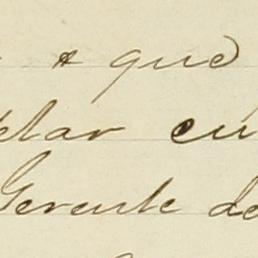 a que
elar cu
Gerente de